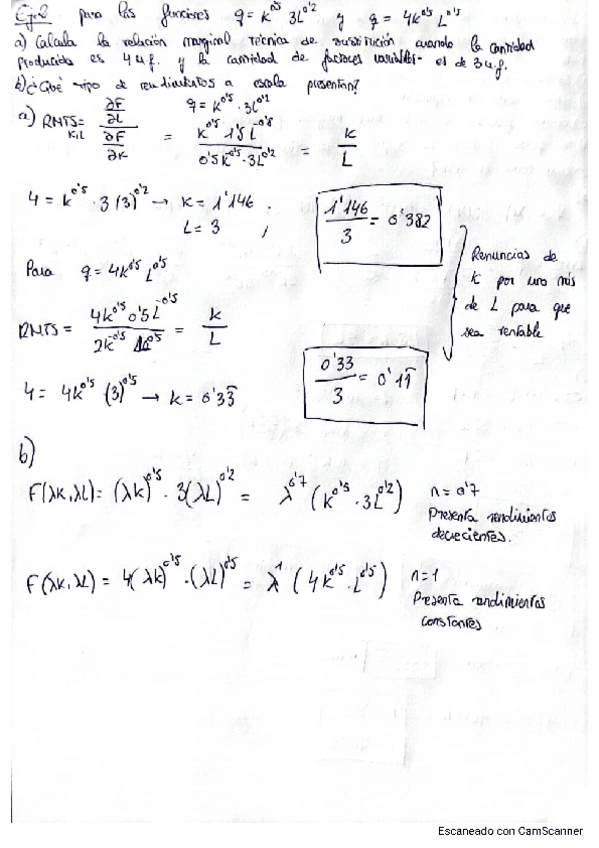 Ej.2 para las funciones q = K^0'5 3L^0'2 y q = 4K^0'5 L^0'5
a) Calcula la relación marginal técnica de sustitución cuando la cantidad
producida es 4 u.f. y la cantidad de factores variables es de 3 u.f.
b) ¿Qué tipo de rendimientos a escala presentan?
q = K^0'5 · 3L^0'2
a) RMTS K,L = (∂F/∂L)/(∂F/∂K) = (K^0'5 1'5 L^-0'8)/(0'5 K^-0'5 · 3L^0'2) = K/L
4 = K^0'5 · 3 (3)^0'2 → K = 1'146
L = 3
1'146/3 = 0'382
Para q = 4K^0'5 L^0'5
Renuncias de
K por uno más
de L para que
sea rentable
RMTS = (4K^0'5 0'5L^-0'5)/(2K^-0'5 L^0'5) = K/L
0'33/3 = 0'11
4 = 4K^0'5 (3)^0'5 → K = 0'33
b)
F(λK,λL) = (λK)^0'5 · 3(λL)^0'2 = λ^0'7 (K^0'5 · 3L^0'2) n = 0'7
Presenta rendimientos
decrecientes.
F(λK,λL) = 4(λK)^0'5 · (λL)^0'5 = λ^1 (4K^0'5 · L^0'5) n = 1
Presenta rendimientos
constantes
Escaneado con CamScanner